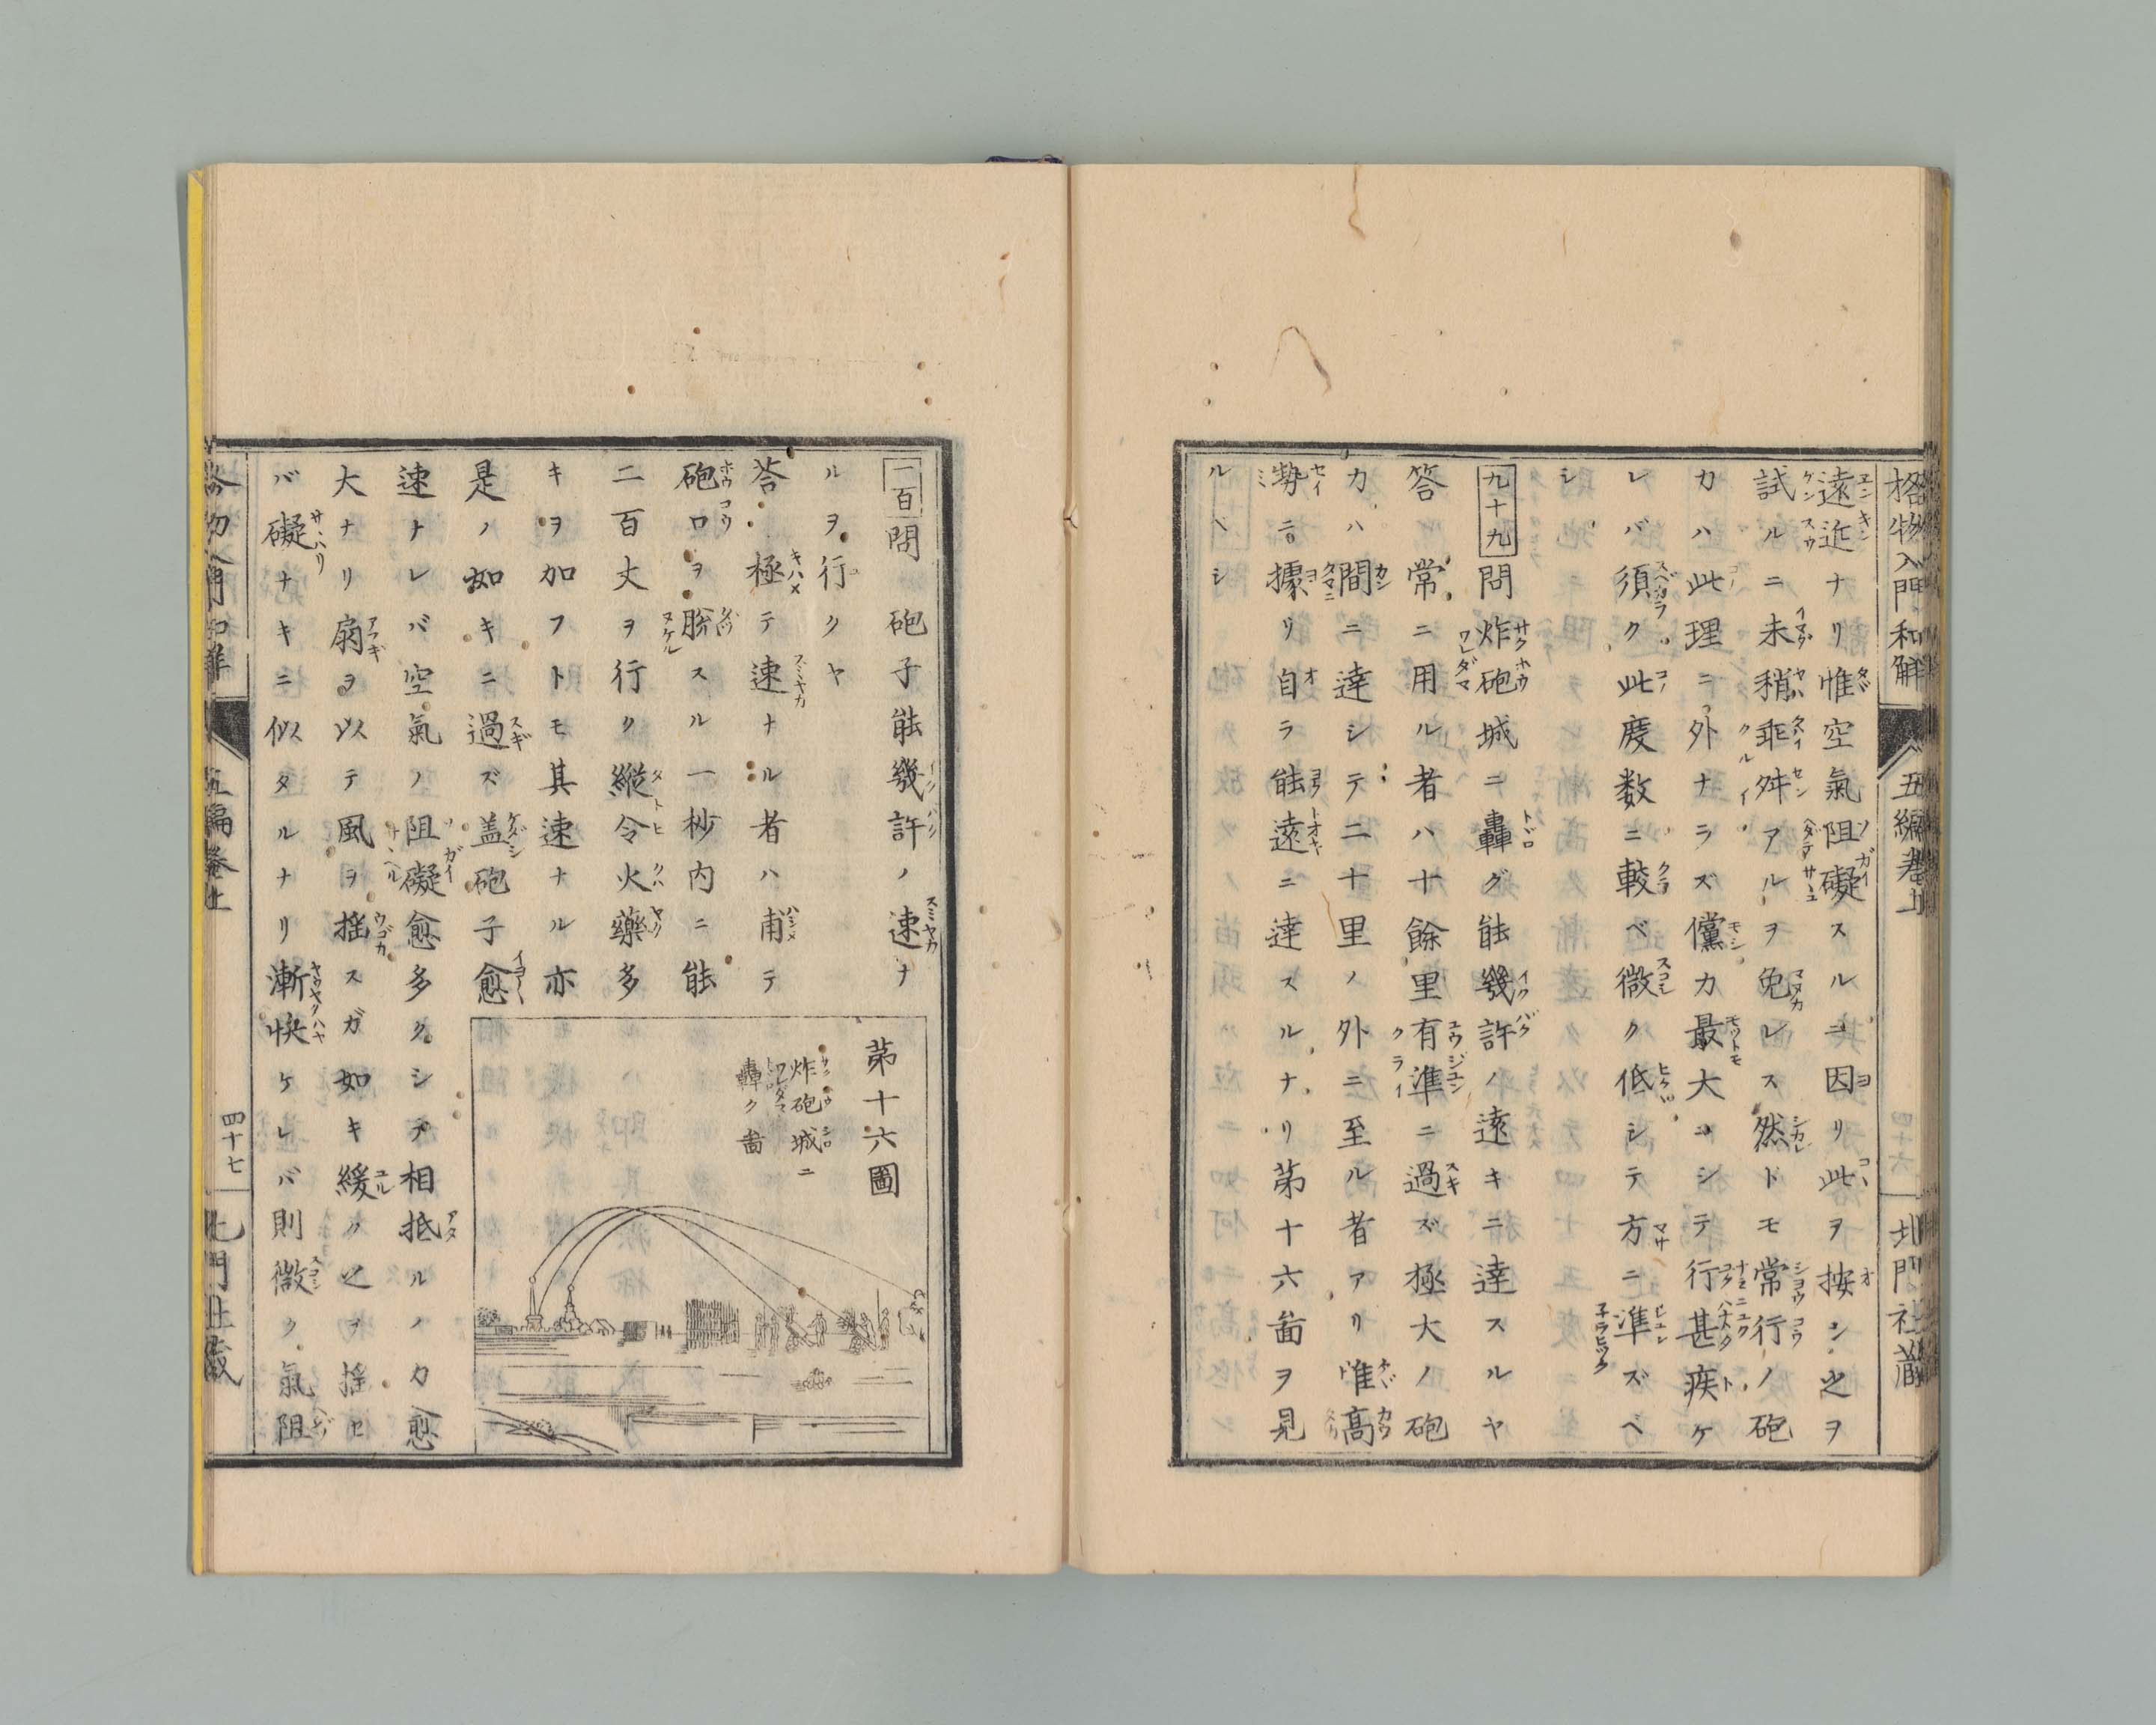 格物入門和解
五編巻上
北門社蔵
遠近ナリ惟空氣阻礙スルニ因リ此ヲ按ン之ヲ
試ルニ未稍乖舛アルヲ免レス然ドモ常行ノ砲
カハ此理ニ外ナラズ儻カ最大ニシテ行甚疾ケ
レバ須ク此度数ニ較ベ微ク低シテ方ニ準ズベ
シ
九十九問 炸砲城ニ轟グ能幾許ノ遠キニ達スルヤ
答 常ニ用ル者ハ十餘里有準ニ過ズ極大ノ砲
カハ間ニ達シテ二十里ノ外ニ至ル者アリ惟高
勢ニ據リ自ラ能遠ニ達スルナリ第十六啚ヲ見
ルベシ
一百問 砲子能幾許ノ速ナ
ルヲ行クヤ
答 極テ速ナル者ハ甫テ
砲口ヲ脱スル一杪内ニ能
二百丈ヲ行ク縱令火藥多
キヲ加フトモ其速ナル亦
是ノ如キニ過ズ盖砲子愈
速ナレバ空氣ノ阻礙愈多クシテ相抵ルノカ愈
大ナリ扇ヲ以テ風ヲ揺スガ如キ緩ク之ヲ揺セ
バ礙ナキニ似タルナリ漸快ケレバ則微ク氣阻
第十六圖
炸砲城ニ
轟ク啚
五編巻上
四十七